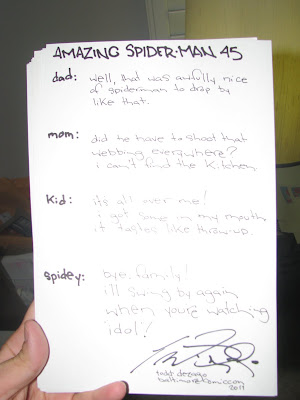 AMAZING SPIDER-MAN 45
dad: well, that was awfully nice
of spiderman to drop by
like that.
mom: did he have to shoot that
webbing everywhere?
i can't find the kitchen.
Kid: it's all over me!
i got some in my mouth
it tastes like throw-up.
spidey: bye, family!
i'll swing by again
when you're watching
'idol'!
todd dezago
baltimore comiccon